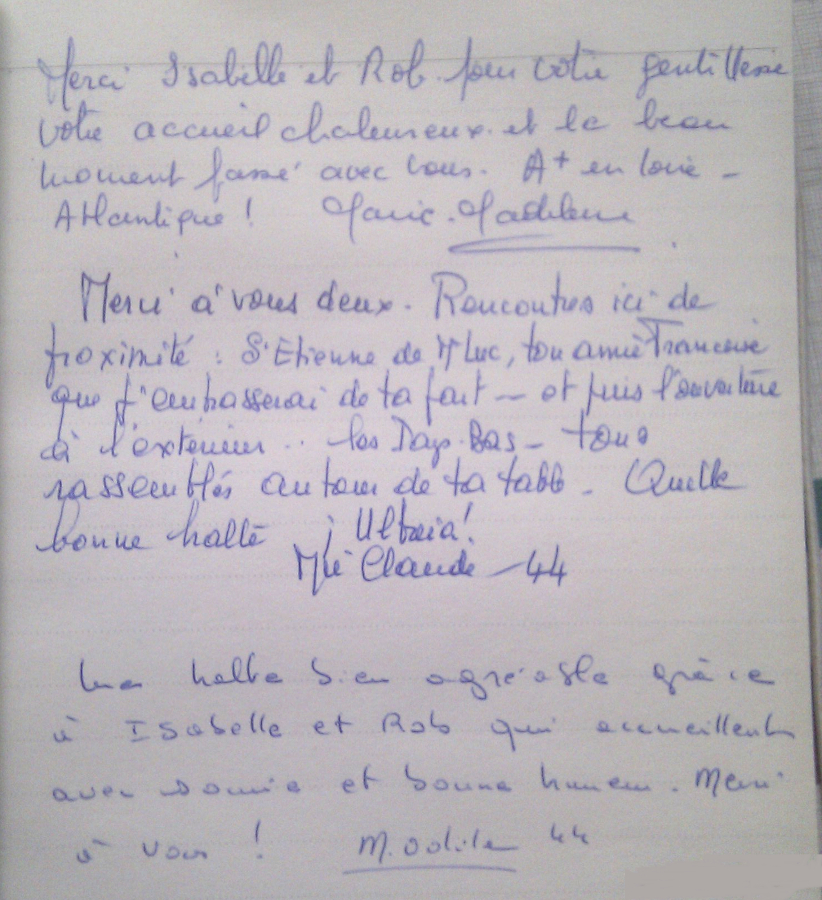 Merci Isabelle et Rob. pour votre gentillesse
votre accueil chaleureux. et le beau
moment passé avec vous. A+ en Loire -
Atlantique ! Marie-Madeleine
Merci à vous deux. Rencontres ici de
proximité : St Etienne de M Luc, ton amie Francoise
que j'embrasserai de ta part - et puis l'ouverture
à l'extérieur .. les Pays-Bas - tous
rassemblés autour de ta table. Quelle
bonne halte ¡ Ultreia!
Mie Claude - 44
Une halte bien agréable grâce
à Isabelle et Rob qui accueillent
avec sourire et bonne humeur. Merci
à vous ! M. Odile 44